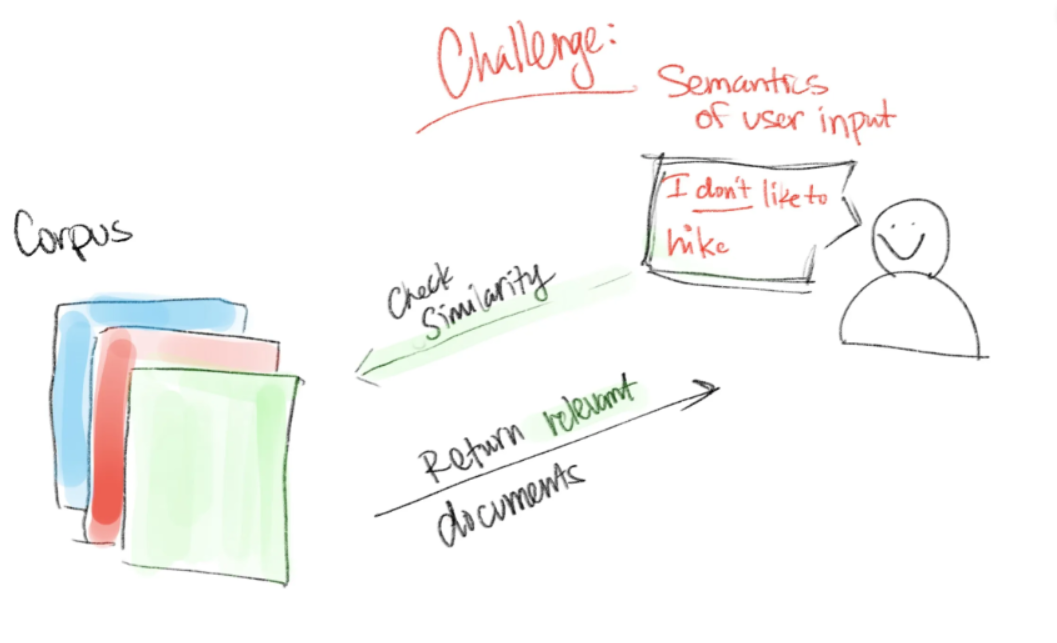 Challenge:
Semantics
of user input
I don't like to
hike
Corpus
Check
Similarity
Return relevant
documents